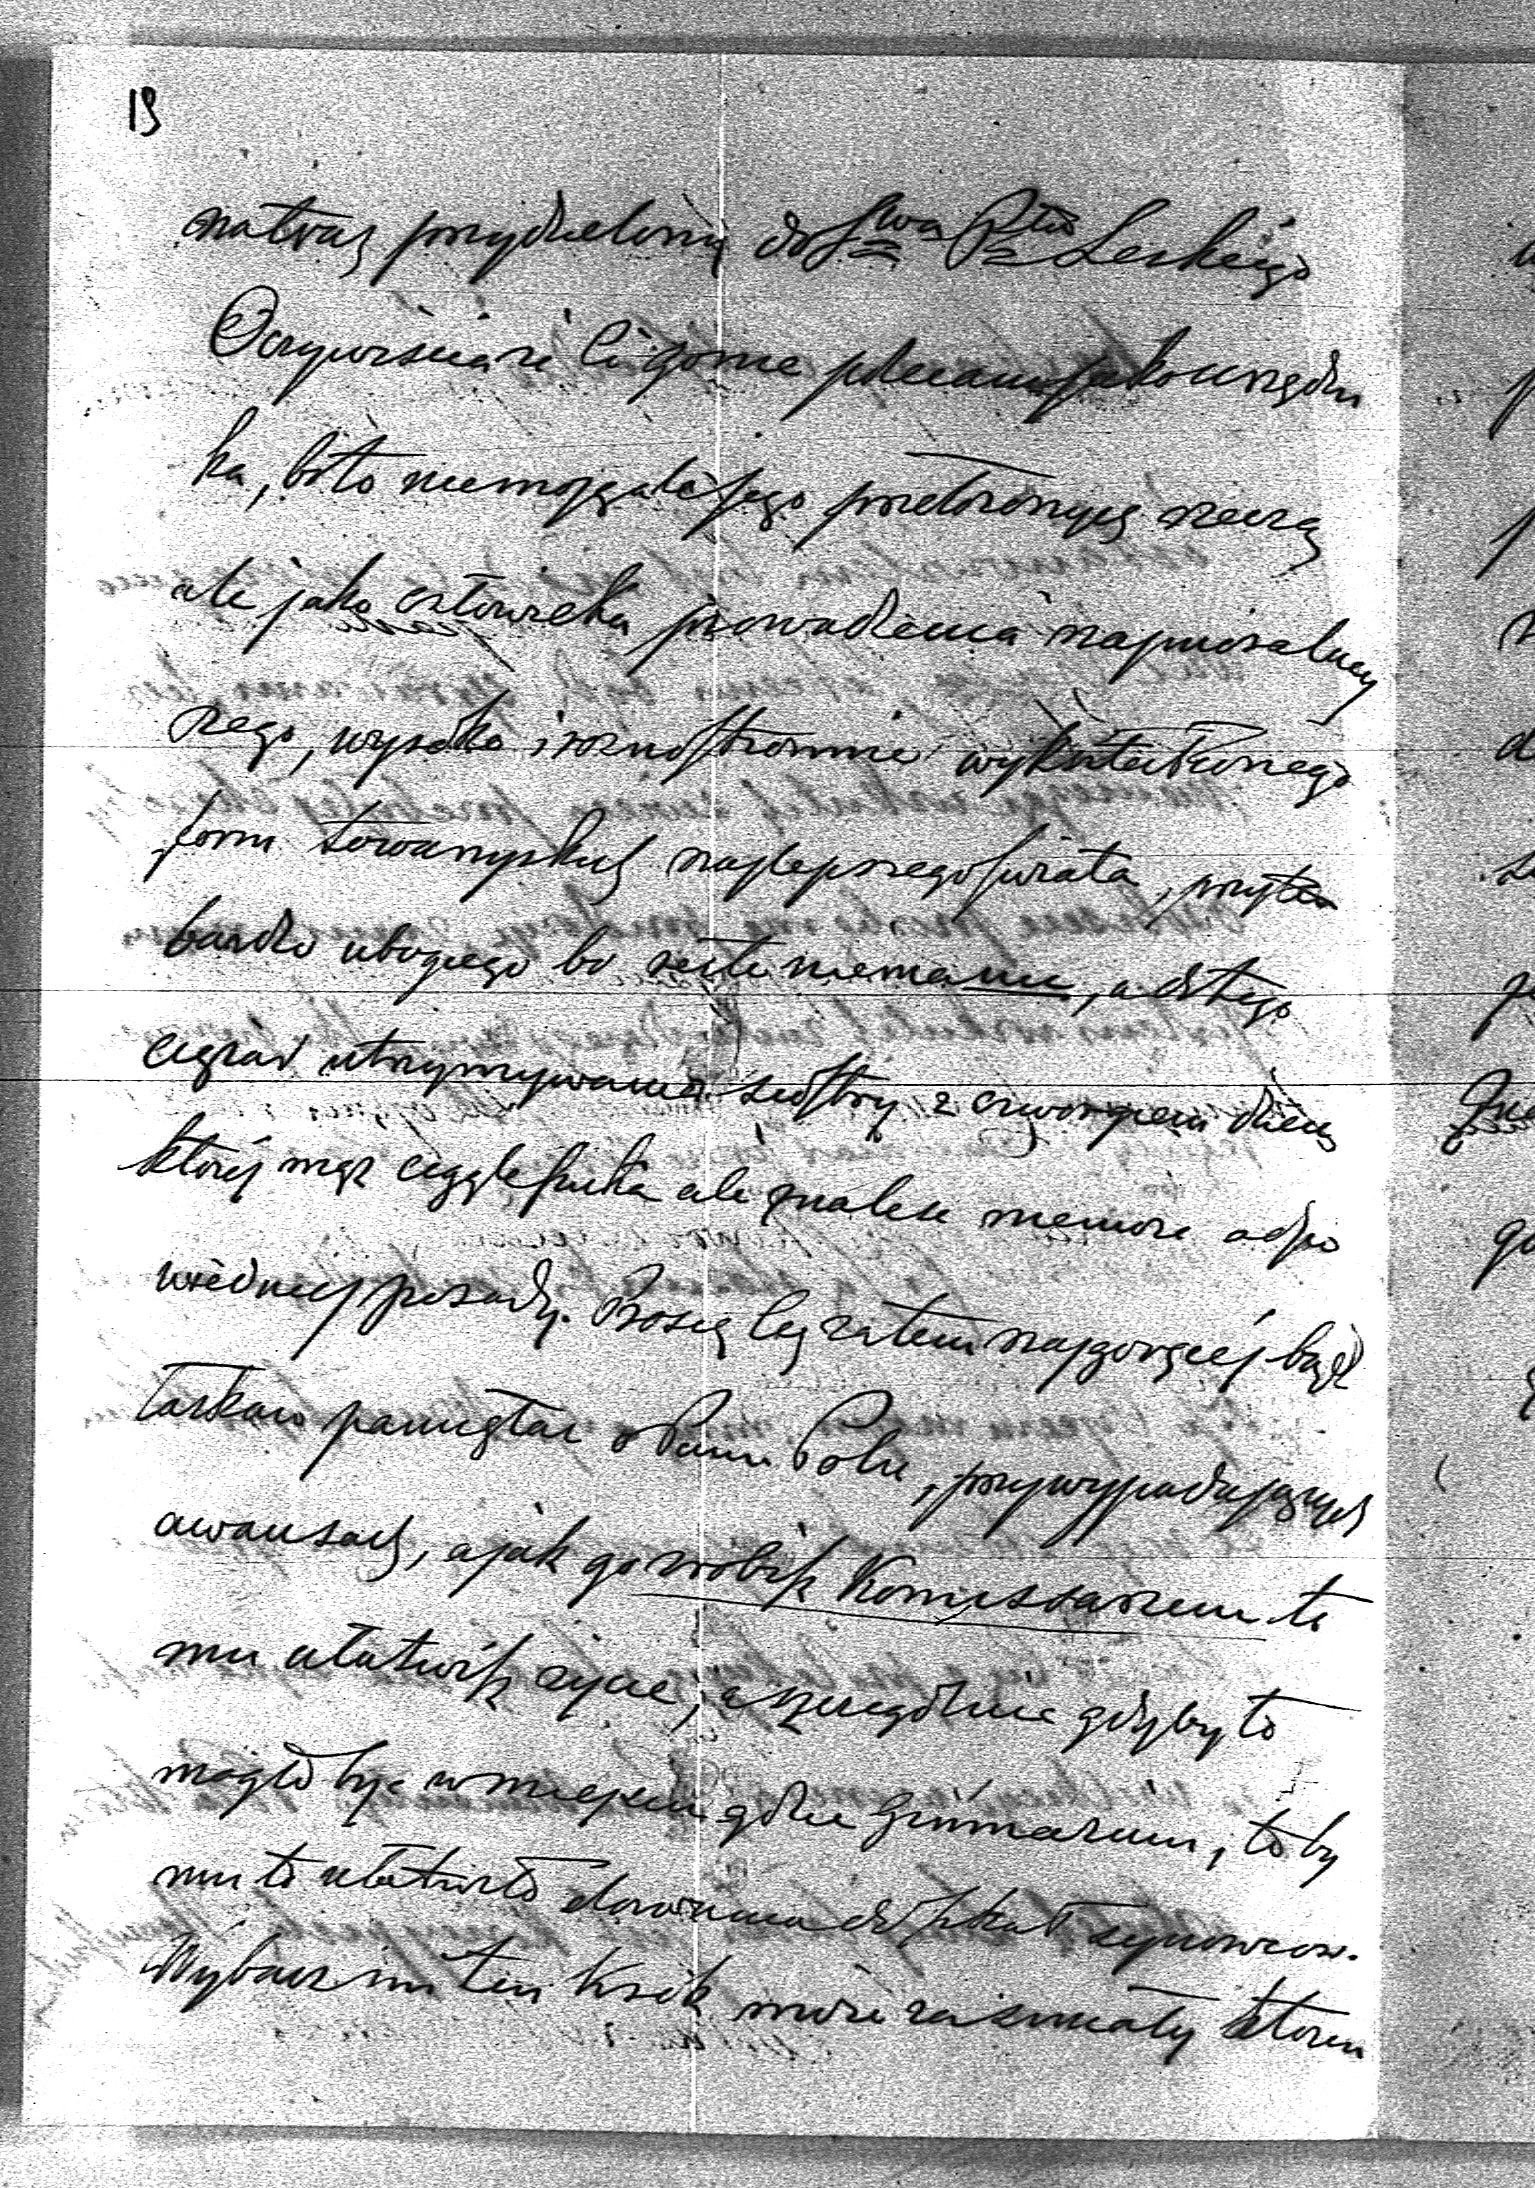 19
natraz przydzelony do Swa Ptwa Leskiego
Oczywiscie że Ci go nie polecam jako urzędni
ka, bo to nie moją ale jego przełożonych rzeczą
ale jako człowieka prowadzenia najmoralniej
szego, wysoko i roznostronnie wykształconego
form towarzyskich najlepszego świata, przytem
bardzo ubogiego bo reszte nie ma nic, a do tego
ciężar utrzymywania siostry z czworgiem dzieci
której mąż ciągle szuka ale znaleść niemoże odpo
wiedniej posady. Proszę Cię zatem najgoręcej bądź
łaskaw pamiętać o Panu Polu, przy wypadających
awansach, a jak go zrobisz Komissarzem to
mu ułatwisz życie, a szczególnie gdyby to
mogło być w miejscu gdzie Gimnazium, to by
mu to ułatwiło dawania do szkół synowców.
Wybacz mi ten krok może za śmiały którem